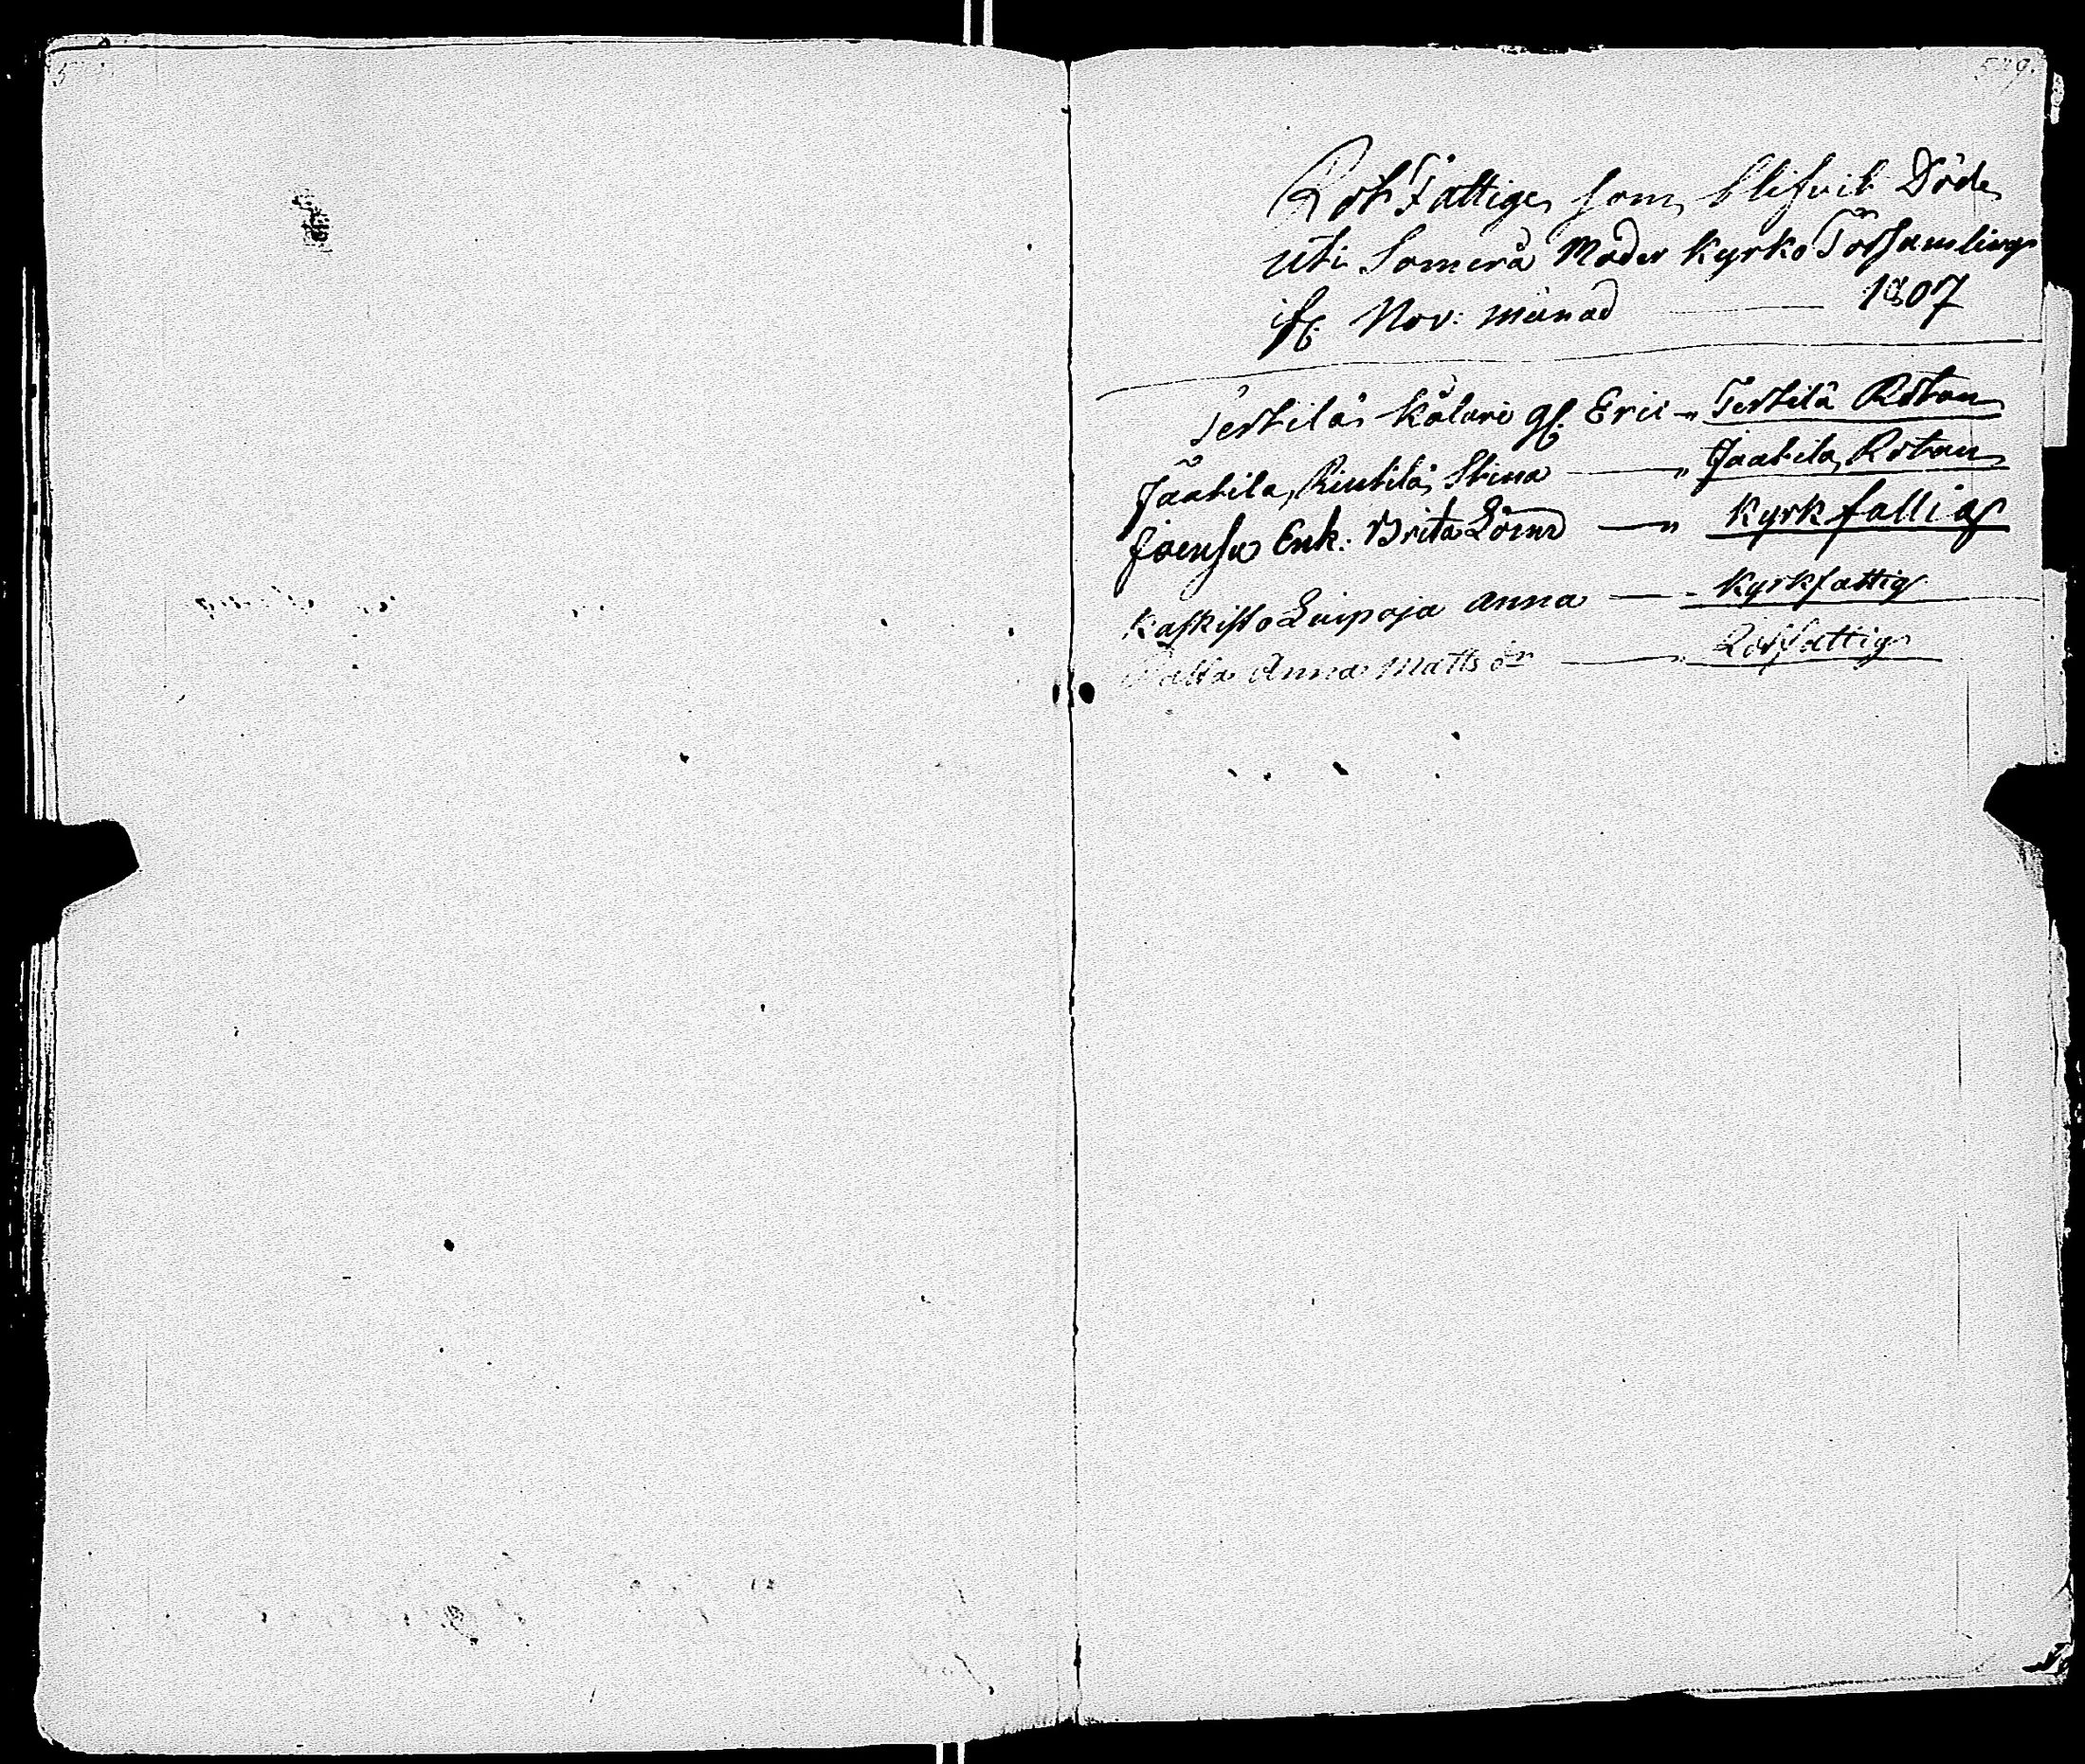 529.
Rot Fattige som blifvit Döde
uti Somero Moder Kyrko Församling
ifr. Nov: månad — 1807
Terttilä Kälari gl. Eric — Terttilä Rotan
Jaatila, Riutilä, Stina — Jaatila, Rotan
Joensu Enk: Brita — Kyrkfattig
Kaskisto Luipaja Anna — Kyrkfattig
Anna Matts dr — Rotfattig